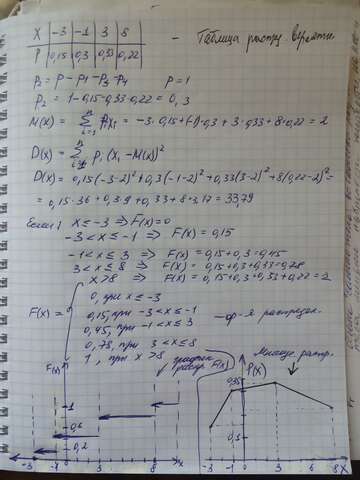 X | -3 | -1 | 3 | 8
P | 0,15 | 0,3 | 0,33 | 0,22 - Таблица распр. вероятн.
P₂ = P - P₁ - P₃ - P₄ P = 1
P₂ = 1 - 0,15 - 0,33 - 0,22 = 0,3
M(X) = Σ PᵢXᵢ = -3·0,15 + (-1)·0,3 + 3·0,33 + 8·0,22 = 2
D(X) = Σ Pᵢ (Xᵢ - M(X))²
D(X) = 0,15(-3-2)² + 0,3(-1-2)² + 0,33(3-2)² + 8(0,22-2)² =
= 0,15·36 + 0,3·9 + 0,33 + 8·3,17 = 33,79
Если x ≤ -3 ⇒ F(x) = 0
-3 < x ≤ -1 ⇒ F(x) = 0,15
-1 < x ≤ 3 ⇒ F(x) = 0,15 + 0,3 = 0,45
3 < x ≤ 8 ⇒ F(x) = 0,15 + 0,3 + 0,33 = 0,78
x > 8 ⇒ F(x) = 0,15 + 0,3 + 0,33 + 0,22 = 2
0, при x ≤ -3
0,15, при -3 < x ≤ -1
F(x) = 0,45, при -1 < x ≤ 3 - ф-я распредел.
0,78, при 3 < x ≤ 8
1, при x > 8
график распр. F(x)
F(x)
1
0,6
0,2
-3 -1 3 8 x
Многоуг. распр.
P(X)
0,35
0,5
-3 -1 3 8 X